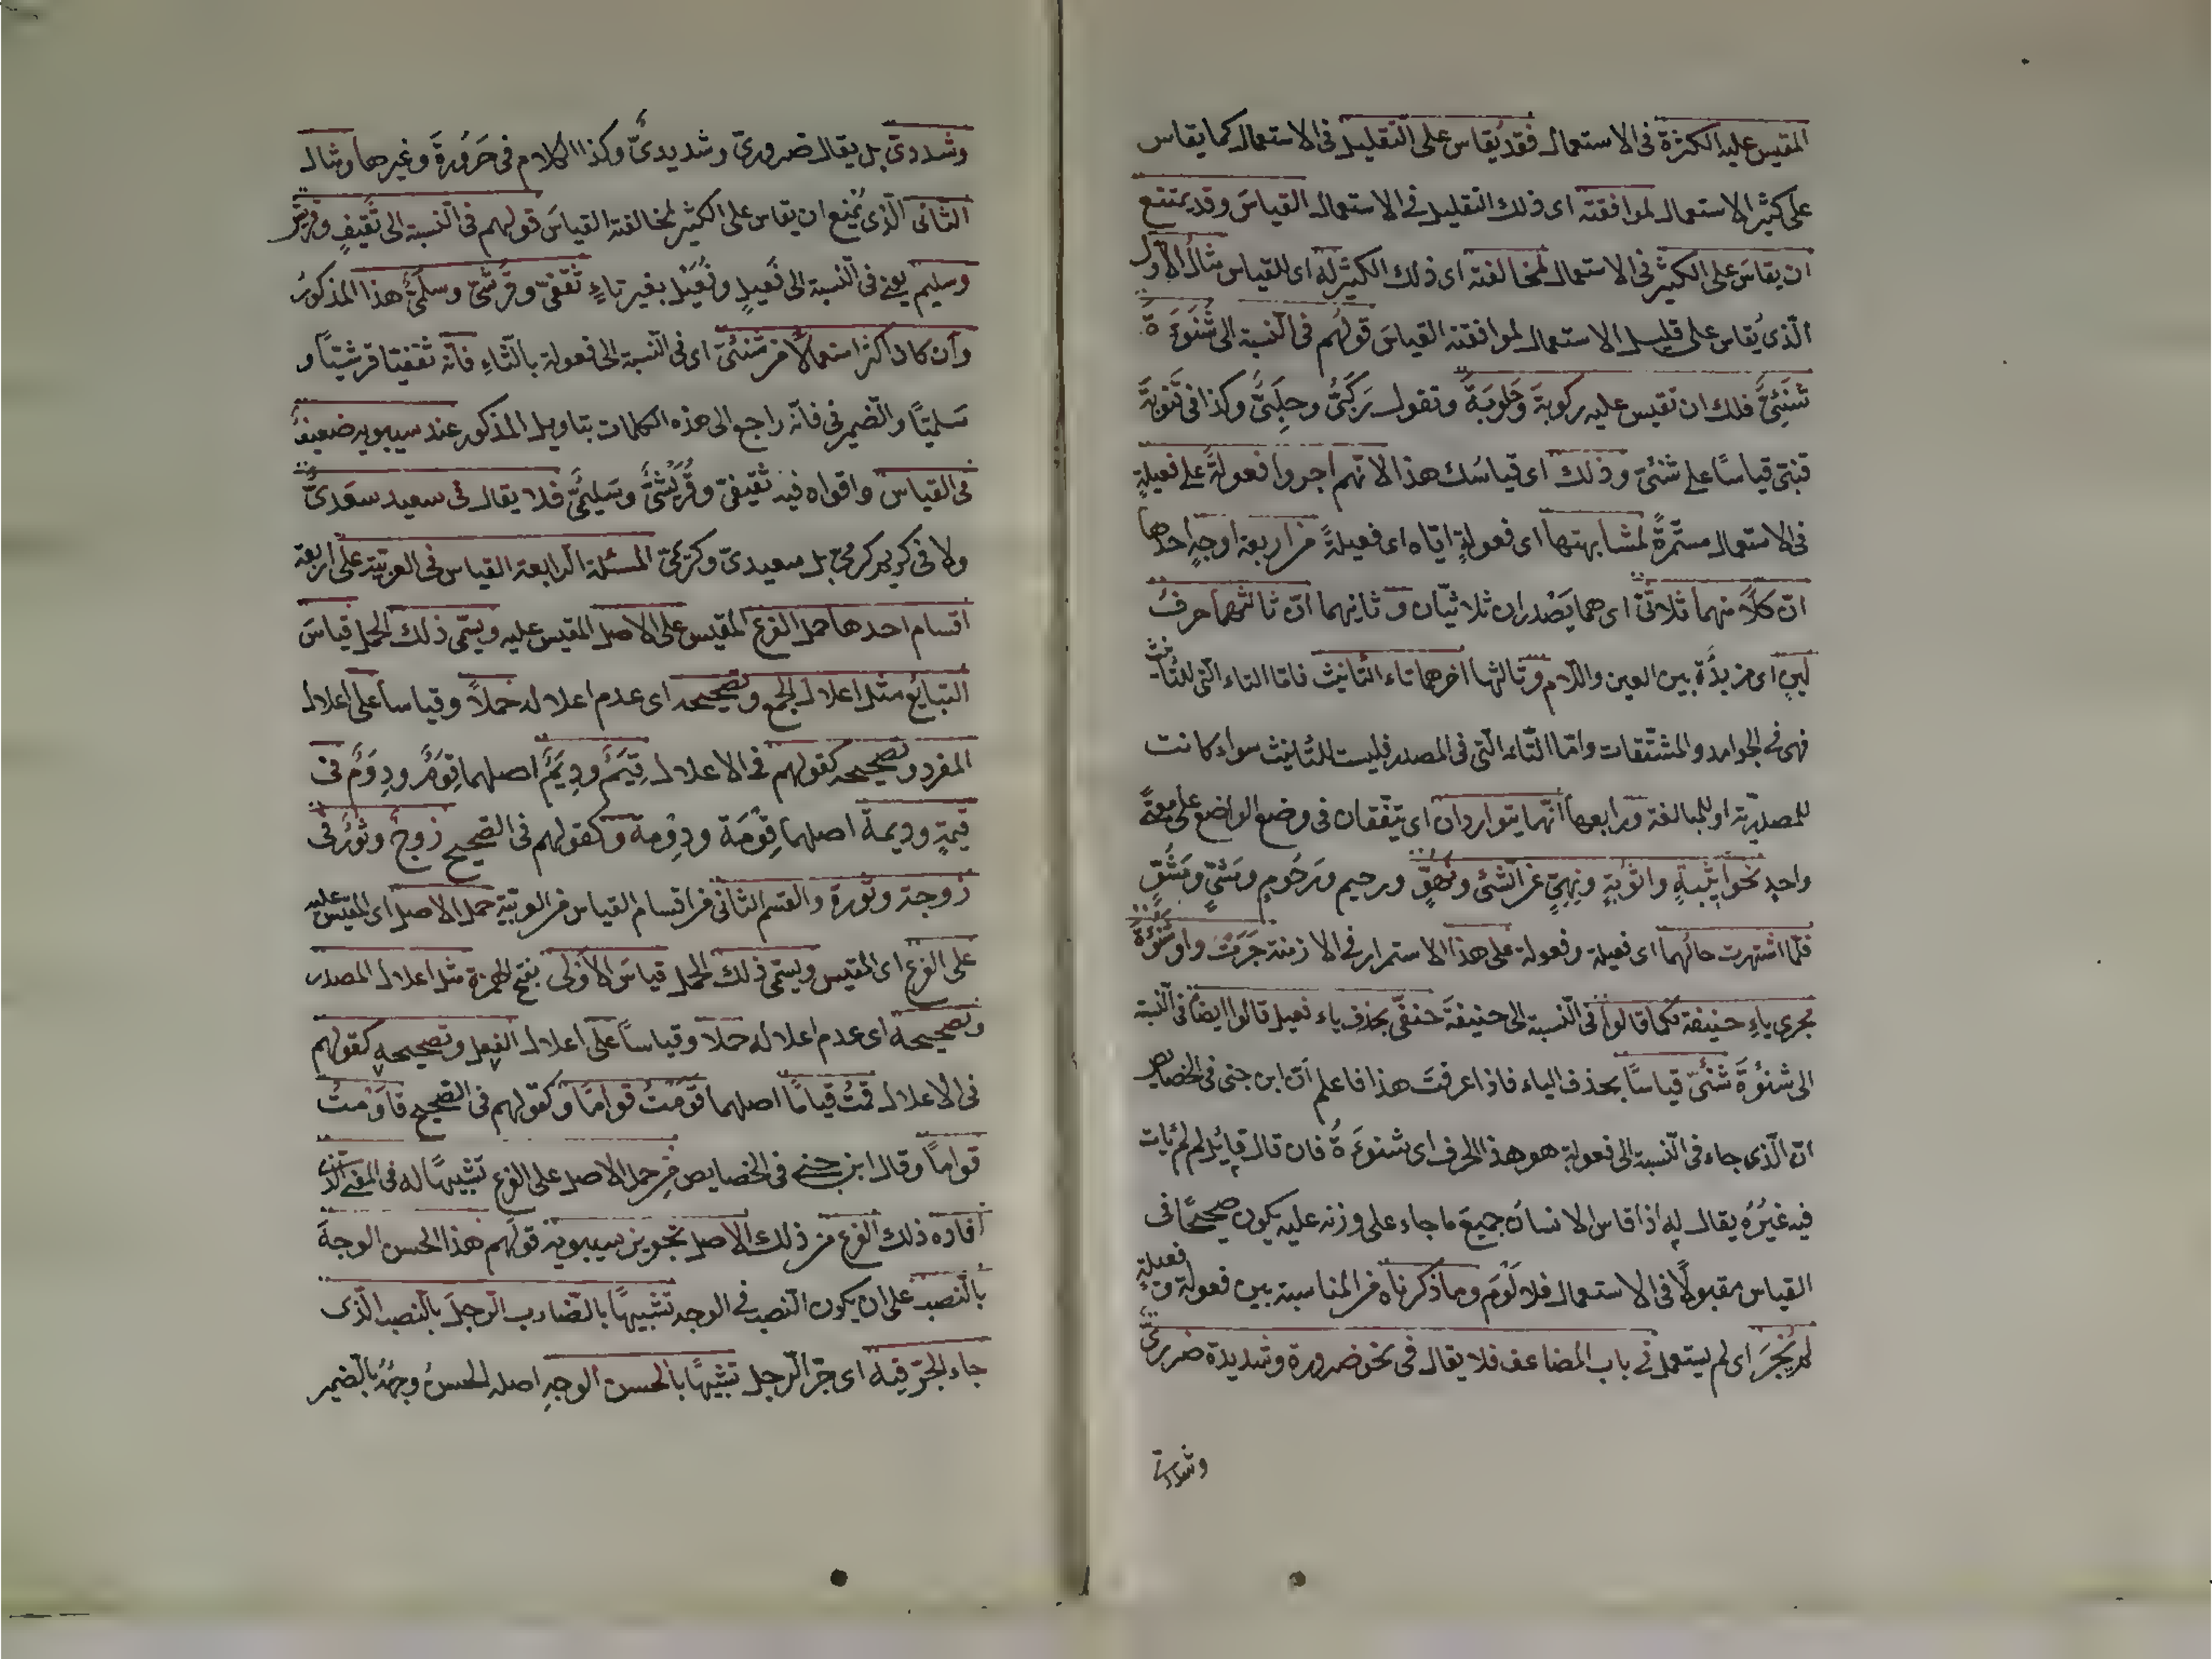 المقيس عليه الكثرة فى الاستعمال فقد يُقاس على القليل فى الاستعمال كما يقاس
على كثير الاستعمال لموافقته اى ذلك القليل فى الاستعمال القياسَ وقد يمتنع
ان يقاسَ على الكثير فى الاستعمال لمخالفته اى ذلك الكثير له اى للقياس مثال الاول
الّذى يُقاس على قليل الاستعمال لموافقته القياسَ قولهُم فى النّسبة الى شَنوءَة
شَنَئِىّ فلك ان تقيس عليه ركوبة وحَلوبَة وتقول رَكَبىٌّ وحلَبىٌّ وكذا فى قتوبَة
قتبىّ قياسًا على شنئىّ وذلك اى قياسُك هذا لانّهم اجروا فعولةً على فعيلةٍ
فى الاستعمال مستمّرةً لمشابهتها اى فعولةٍ ايّاه اى فعيلةً من اربعة اوجهٍ احدها
انّ كلاًّ منهما ثلاثىّ اى هما يَصْدران ثلاثيّان وثانيهما انّ ثالثهما حرفُ
لينٍ اى مزيدُة بين العين واللّام وثالثها اخرهما تاء التّأنيث فامّا التاء الّتى للتّأنيث
فهى فى الجوامد والمشتّقات وامّا التّاء الّتى فى المصدر فليست للتّأنيث سواء كانت
للمصدريّة او للمبالغة ورابعها انّهما يتواردان اى يتّفقان فى وضع الواضع على معنىً
واحدٍ نحو اثيمةٍ واثومةٍ ونهىٍّ عن الشّئ ونهوٍّ ورحيم ورَحُومٍ ومَشىٍّ ومَشُوٍّ
فلمّا اشتهرت حالُهما اى فعيلة وفعولة على هذا الاستمرار فى الازمنة جَرَتْ واو شَنوُءَةَ
مجرى ياءِ حنيفة فكما قالوا فى النّسبة الى حنيفَة حنفىّ بحذف ياء فعيل قالوا ايضا فى النّسبة
الى شنوُءَةَ شَنَئىّ قياسًا بحذف الياء فاذا عرفتَ هذا فاعلم انّ ابن جنى فى الخصايص
انّ الّذى جاء فى النّسبة الى فعولةٍ هو هذا الحرف اى شنوءَةُ فان قال قايِل لم لم يَات
فيه غيرُهُ يقال له اذا قاس الانسانُ جميعَ ما جاء على وزنه عليه يكون صحيحًا فى
القياس مقبولًا فى الاستعمال فلا لَوْمَ وما ذكرناه من المناسبة بين فعولة وفعيلةٍ
لم يُجْرَ اى لم يستعمل فى باب المضاعف فلا يقال فى نحو ضرورة وشديدة ضررىّ
وشددىّ
وشددىّ بل يقال ضرورىّ وشديدىٌّ وكذا الكلام فى حَرُورةَ وغيرها ومثال
الثّانى الّذى يُمْنع ان يقاس على الكثير لمخالفته القياسَ قولهم فى النّسبة الى ثَقيفٍ وقريش
وسليم يعنى فى النّسبة الى فَعيلٍ وفُعَيْل بغير تاءٍ ثَقَفىّ وقُرَشىّ وسلَمىٌّ هذا المذكورُ
وان كان اكثر استعمالًا من شَنَئىّ اى فى النّسبة الى فعولة بالتّاءِ فانّه ثقفيّا قرشيّاً و
سَلميّا والضّمير فى فانّه راجع الى هذه الكلمات بتاويل المذكور عند سيبويه ضعيفٌ
فى القياس واقواه فيه ثقيفىّ وقُرَيْشىُّ وسَليمىٌّ فلا يقال فى سعيد سعَدىٌّ
ولا فى كريم كرمىّ بل سعيدىّ وكريمىّ المسئلة الرابعة القياس فى العربيّة على اربعة
اقسام احدها حمل الفرع المقيس على الاصل المقيس عليه ويسمّى ذلك الحمل قياسَ
التبايُع مثل اعلال الجمع وتصحيحه اى عدم اعلاله حملاً وقياساً على اعلال
المفرد وتصحيحه كقولهم فى الاعلال قِيَمٌ ودِيَمٌ اصلهما قِوَمٌ ودِوَمٌ فى
قيمةٍ وديمة اصلهما قِوْمَة ودِوْمة وكقولهم فى الصّحيح زوجٌ وثورٌ فى
زوجة وثورة والقسم الثانى من اقسام القياس من العربيّة حمل الاصل اى المقيس عليه
على الفرع اى المقيس ويسمّى ذلك الحمل قياسَ الاَوْلى بفتح الهمزة مثل اعلال المصدر
وتصحيحه اى عدم اعلاله حملا وقياساً على اعلال الفعل وتصحيحه كقولهم
فى الاعلال قمتُ قيامًا اصلهما قوَمَتُ قوامًا وكقولهم فى الصّحيح قاوَمْتُ
قوامًا وقال ابن جنى فى الخصايص من حمل الاصل على الفرع تشبيهًا له فى المعنى الّذى
افاده ذلك الفرع من ذلك الاصل تجويز سيبويه قولَهم هذا الحسن الوجهَ
بالنّصب على ان يكون النّصب فى الوجه تشبيهًا بالضّارب الرّجلَ بالنّصب الّذى
جاء الجرّ فيه اى جرّ الرّجل تشبيهًا بالحسن الوجهِ اصله الحسنُ وجهُهُ بالضمير